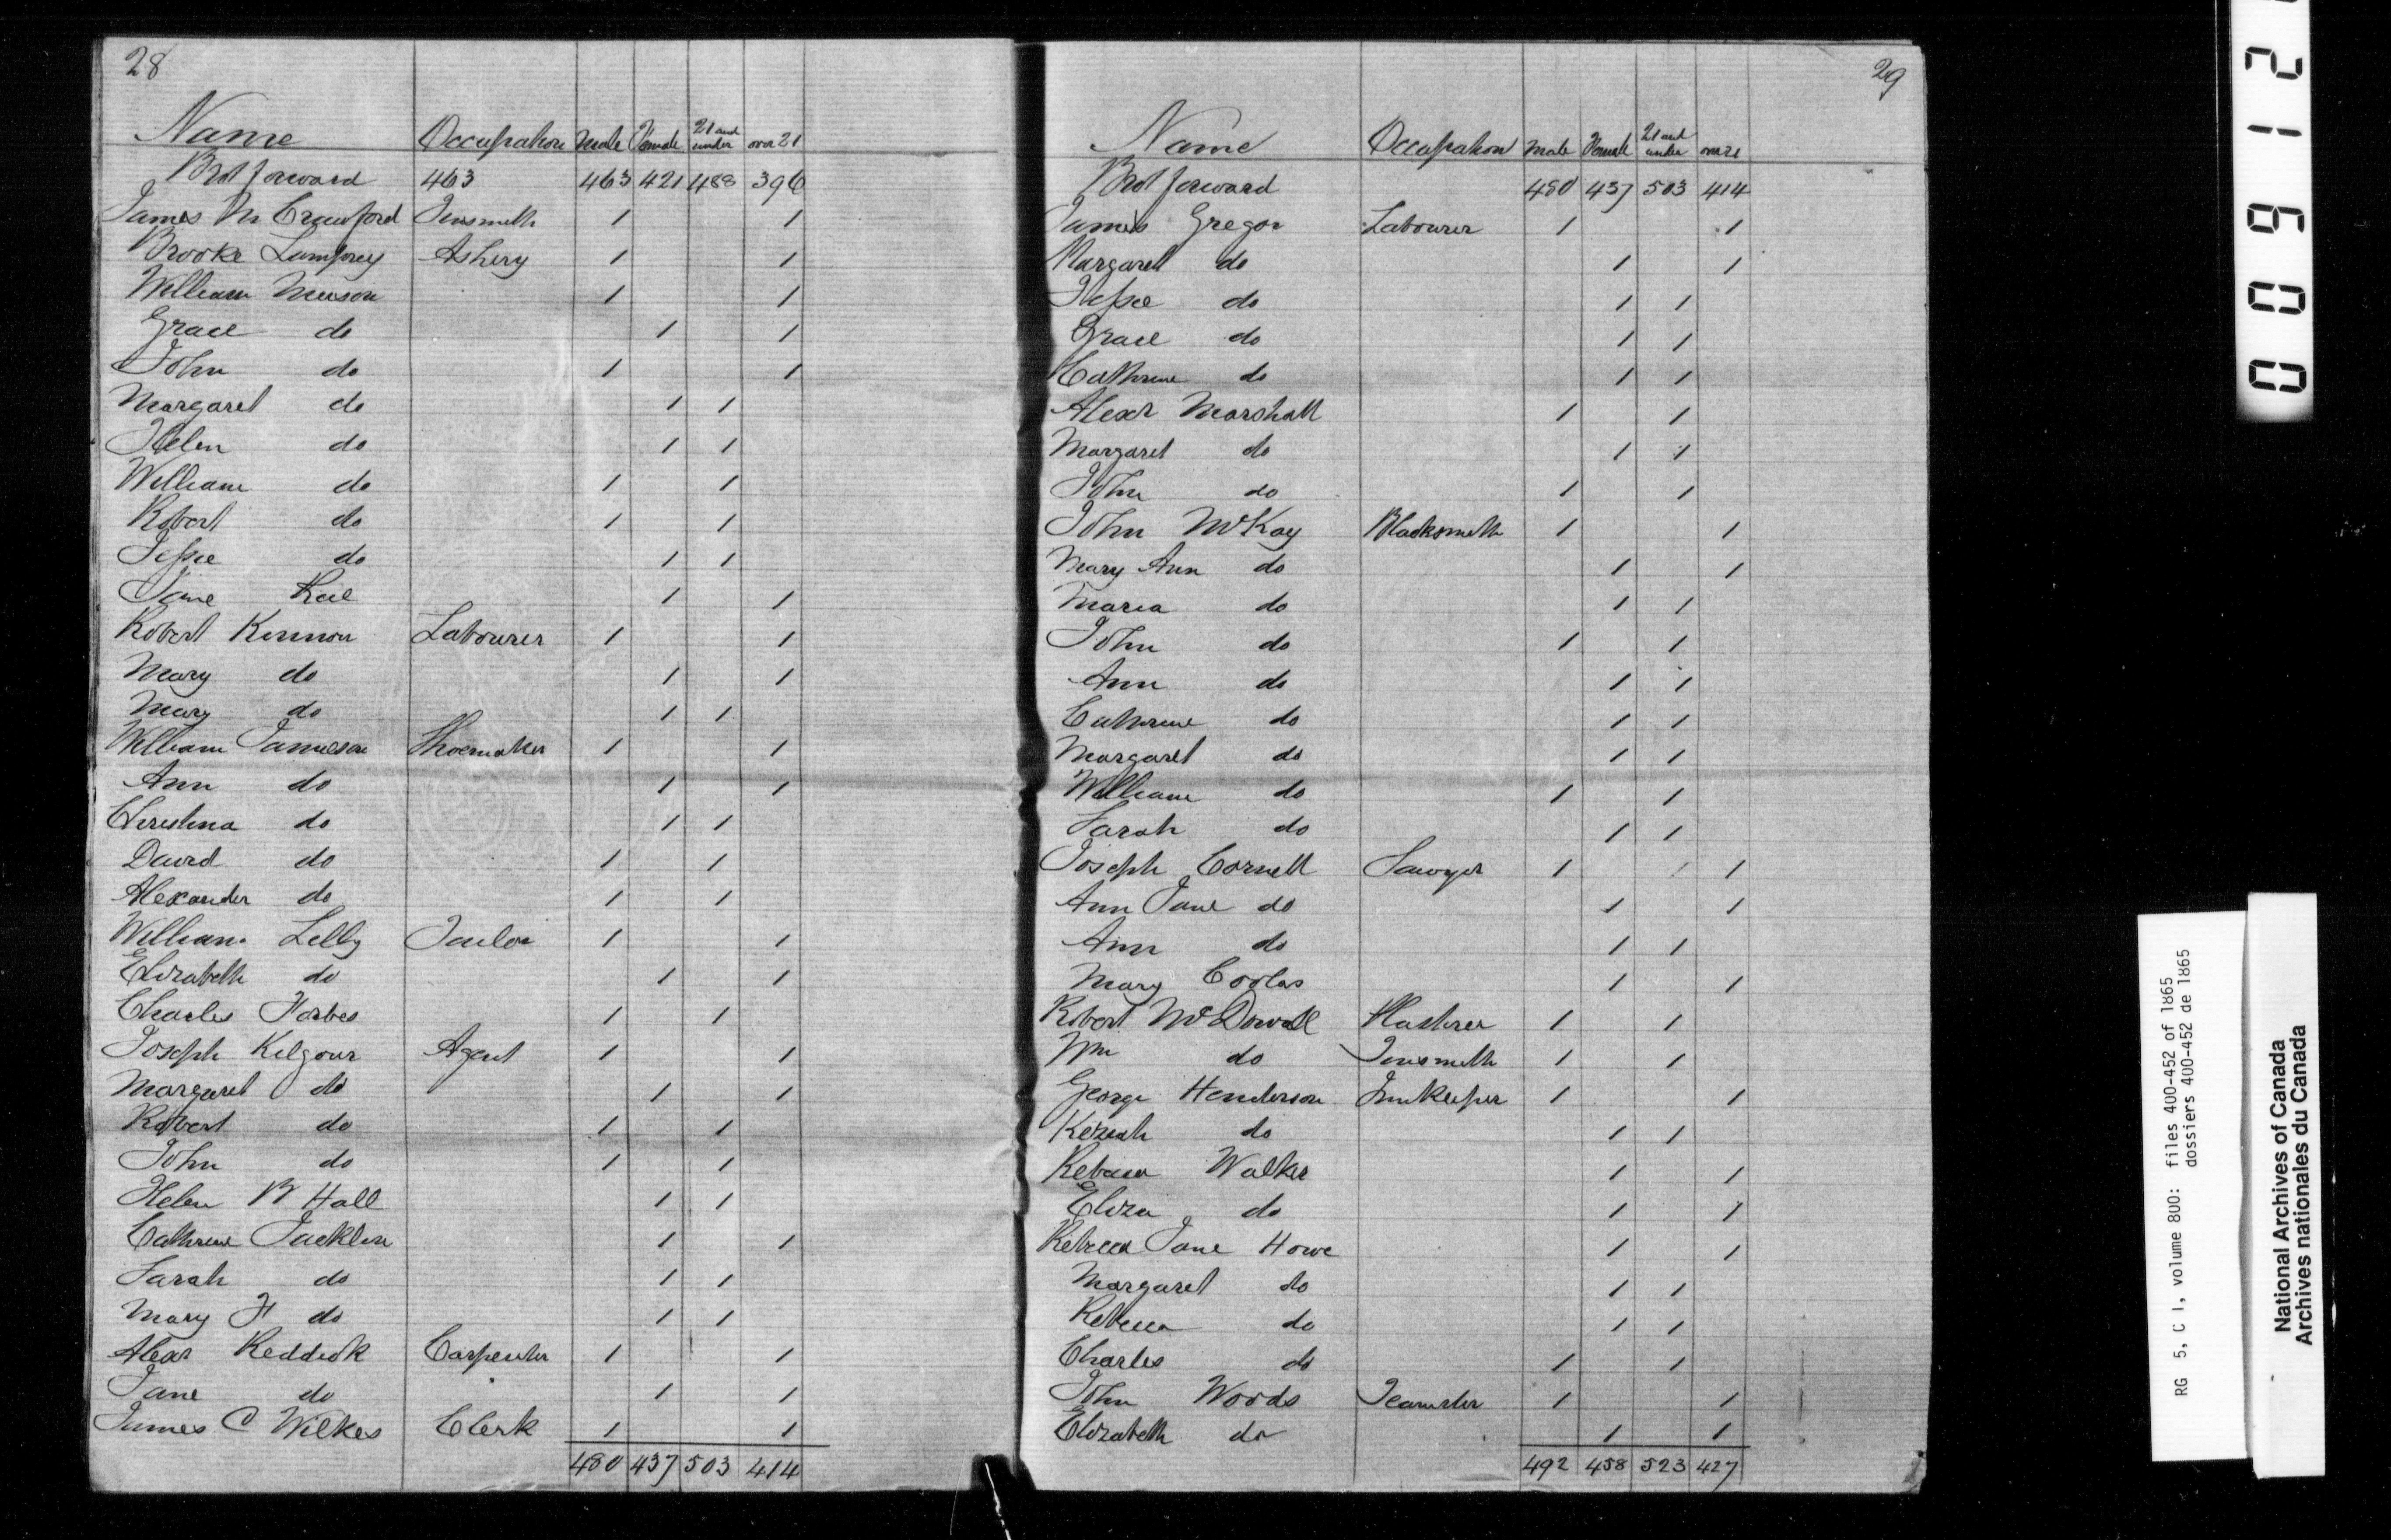 28
Name Occupation Male Female 21 and under over 21
Brot forward 463 463 421 488 396
James M Crawford Tinsmith 1 1
Brooke Lamprey Ashery 1 1
William Muison 1 1
Grace do 1 1
John do 1 1
Margaret do 1 1
Helen do 1 1
William do 1 1
Robert do 1 1
Jessie do 1 1
Jane Rae 1 1
Robert Kennon Labourer 1 1
Mary do 1 1
Mary do 1 1
William Jamieson Shoemaker 1 1
Ann do 1 1
Christina do 1 1
David do 1 1
Alexander do 1 1
William Lelly Tailor 1 1
Elizabeth do 1 1
Charles Forbes 1 1
Joseph Kilgour Agent 1 1
Margaret do 1 1
Robert do 1 1
John do 1 1
Helen B Hall 1 1
Cathrine Jacklin 1 1
Sarah do 1 1
Mary F do 1 1
Alexr Reddick Carpenter 1 1
Jane do 1 1
James C Wilkes Clerk 1 1
480 437 503 414
29
Name Occupation Male Female 21 and under over 21
Brot forward 480 437 503 414
James Gregor Labourer 1 1
Margaret do 1 1
Jessie do 1 1
Grace do 1 1
Cathrine do 1 1
Alexr Marshall 1 1
Margaret do 1 1
John do 1 1
John McKay Blacksmith 1 1
Mary Ann do 1 1
Maria do 1 1
John do 1 1
Ann do 1 1
Cathrine do 1 1
Margaret do 1 1
William do 1 1
Sarah do 1 1
Joseph Cornell Sawyer 1 1
Ann Jane do 1 1
Ann do 1 1
Mary Coolas 1 1
Robert McDowall Plastrer 1 1
Wm do Tinsmith 1 1
George Henderson Innkeeper 1 1
Keziah do 1 1
Rebecca Walker 1 1
Eliza do 1 1
Rebecca Jane Howe 1 1
Margaret do 1 1
Rebecca do 1 1
Charles do 1 1
John Woods Teamster 1 1
Elizabeth do 1 1
492 458 523 427
000912
RG 5, C 1, volume 800: files 400-452 of 1865
dossiers 400-452 de 1865
National Archives of Canada
Archives nationales du Canada